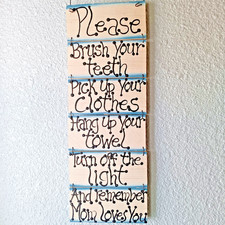 Please
Brush Your
teeth
Pick up Your
Clothes
Hang up Your
towel
Turn off the
light
And remember
Mom Loves You